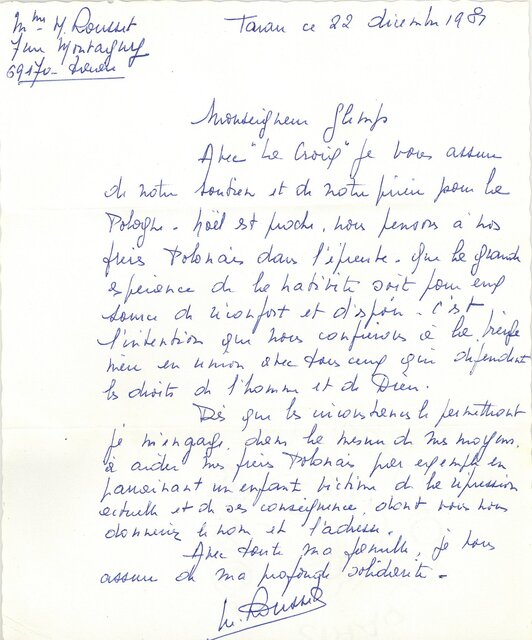 Mme M. Rousset
7 rue Montagny
69170 - Tarare
Tarare ce 22 décembre 1981
Monseigneur Glemp
Avec "La Croix" je vous assure
de notre soutien et de notre prière pour la
Pologne - Noël est proche, nous pensons à nos
frères Polonais dans l'épreuve - que la grande
espérance de la nativité soit pour eux
source de réconfort et d'espoir. C'est
l'intention que nous confions à la Vierge
mère en union avec tous ceux qui défendent
les droits de l'homme et de Dieu.
Dès que les circonstances le permettront
je m'engage, dans la mesure de mes moyens,
à aider mes frères Polonais par exemple en
parrainant un enfant victime de la répression
actuelle et de ses conséquence, dont vous nous
donneriez le nom et l'adresse.
Avec toute ma famille, je vous
assure de ma profonde solidarité -
M. Rousset